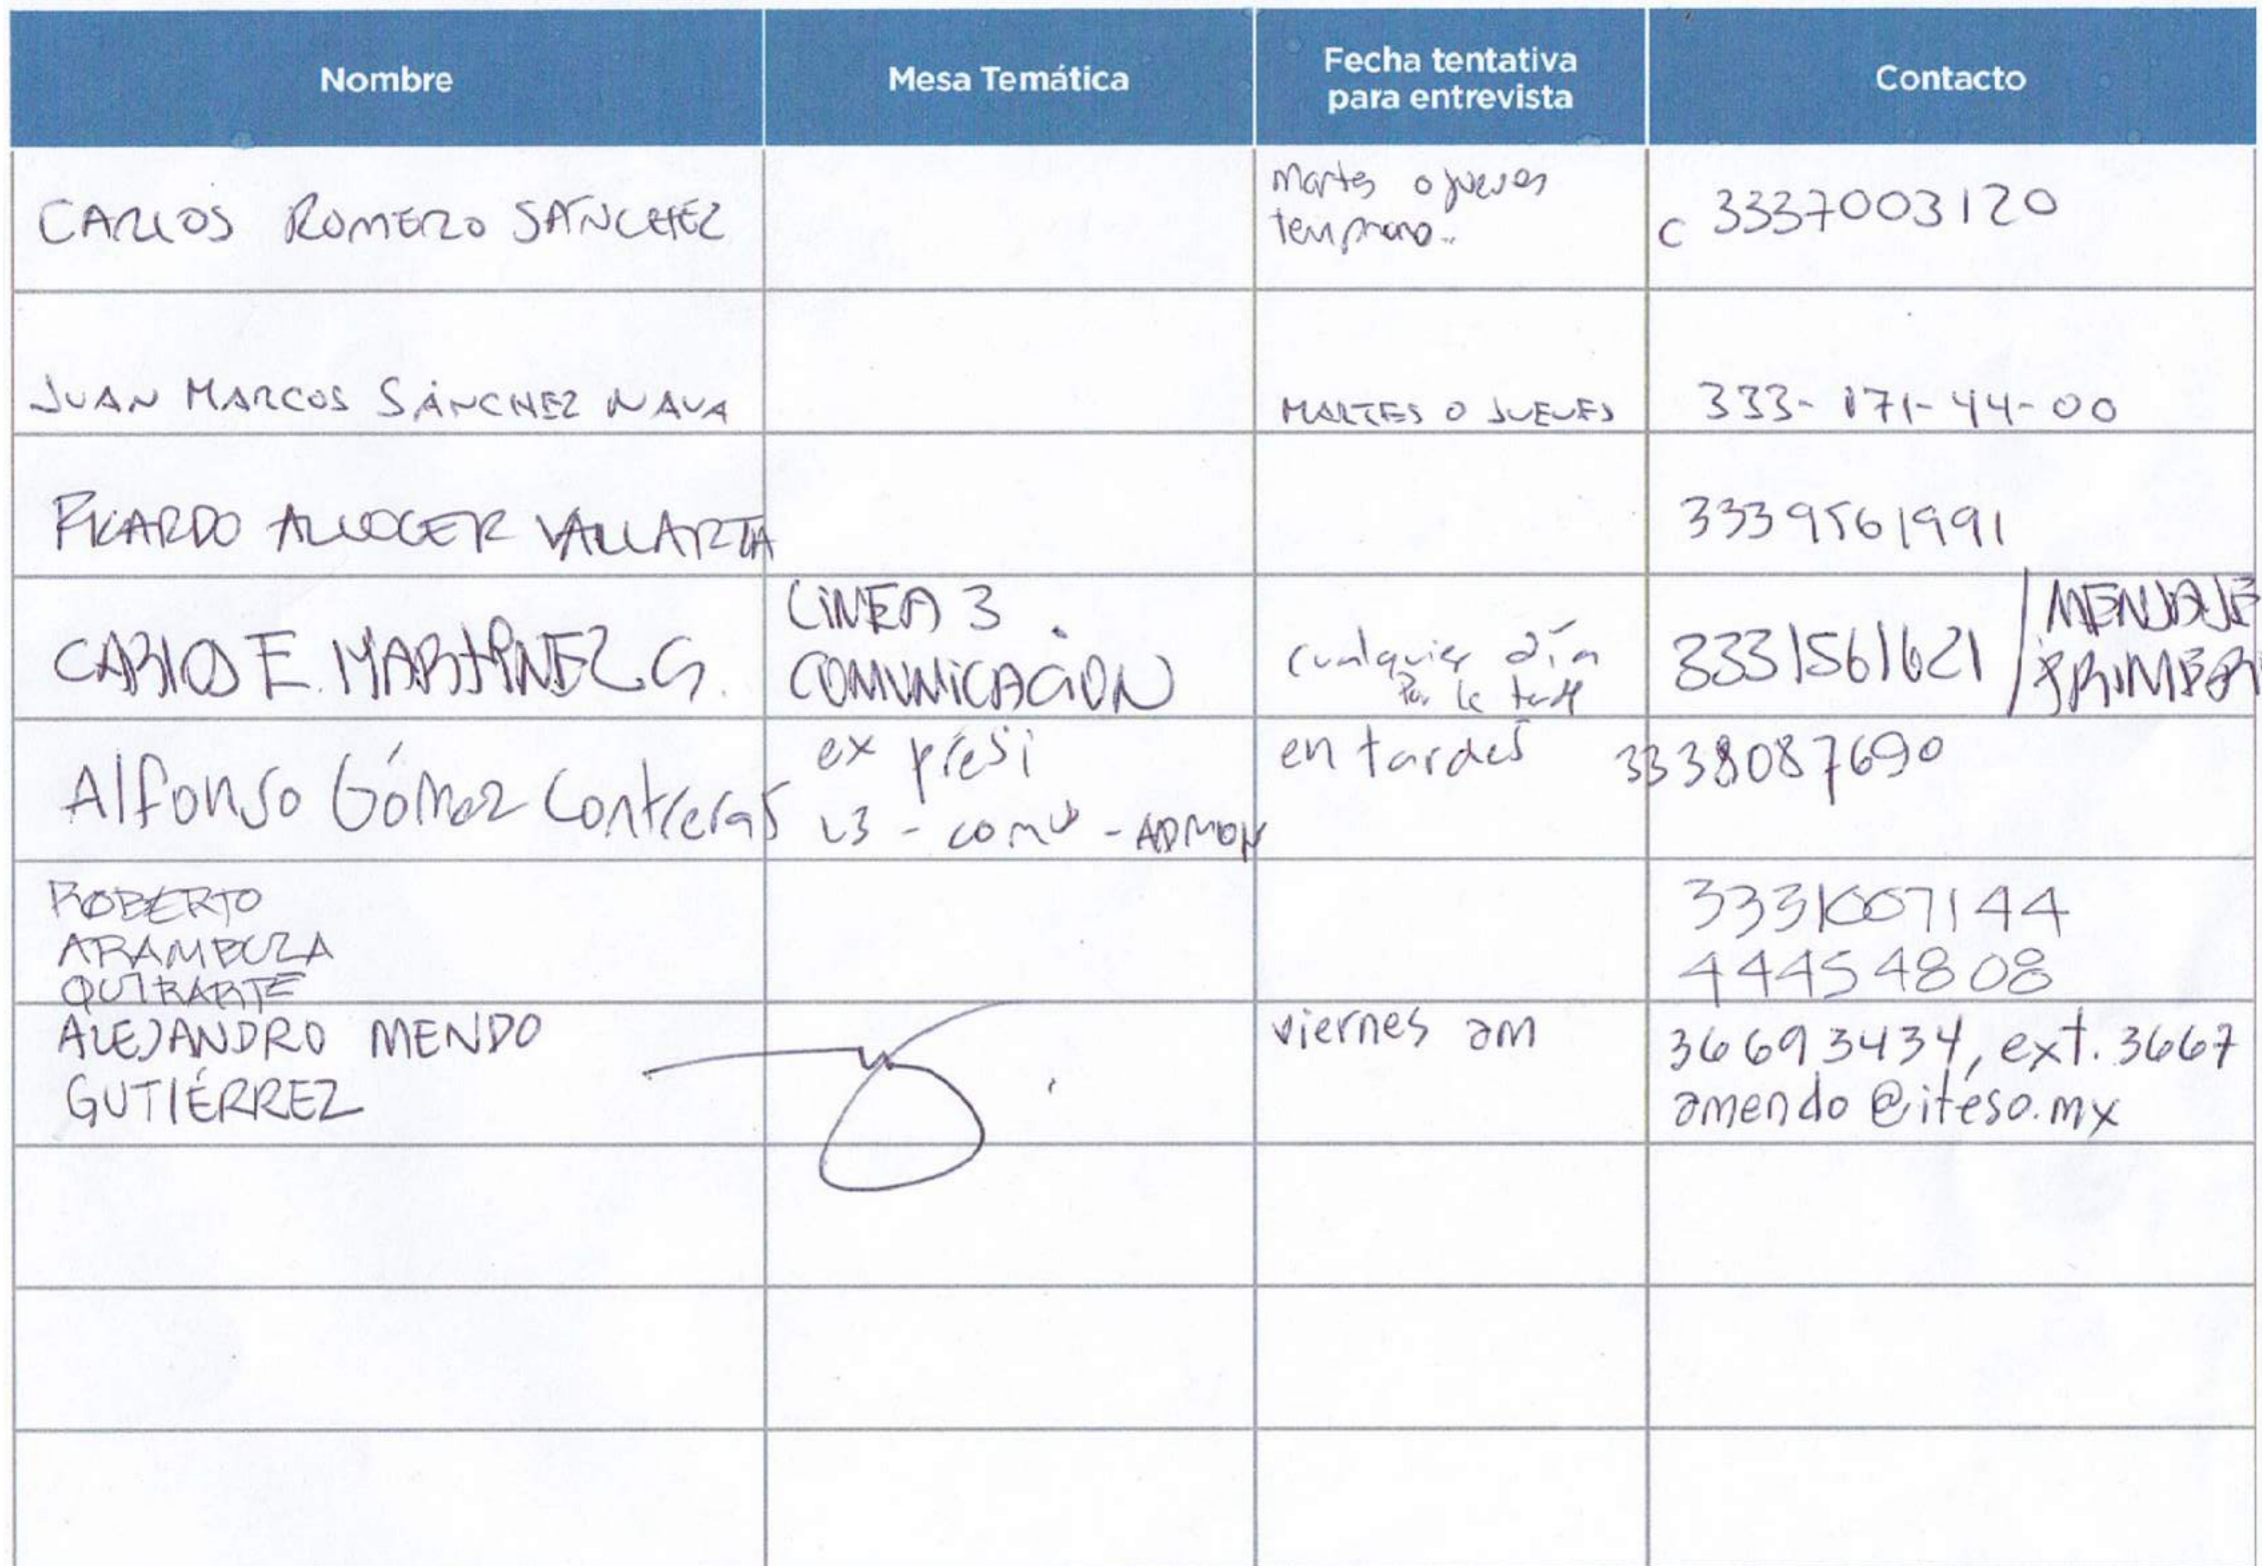 Nombre
Mesa Temática
Fecha tentativa
para entrevista
Contacto
CARLOS ROMERO SÁNCHEZ
martes o jueves
temprano..
C 3337003120
JUAN MARCOS SÁNCHEZ NAVA
MARTES O JUEVES
333-171-44-00
RICARDO ALCOCER VALLARTA
3339561991
CARLOS E. MARTINEZ G.
LINEA 3
COMUNICACIÓN
cualquier día
Por la tarde
3331561621 / MENSAJE
PRIMERO
Alfonso Gómez Contreras
ex presi
L3 - com - ADMON
en tardes
3338087690
ROBERTO
ARAMBULA
QUIRARTE
3331007144
44454808
ALEJANDRO MENDO
GUTIÉRREZ
viernes am
36693434, ext. 3667
amendo@iteso.mx